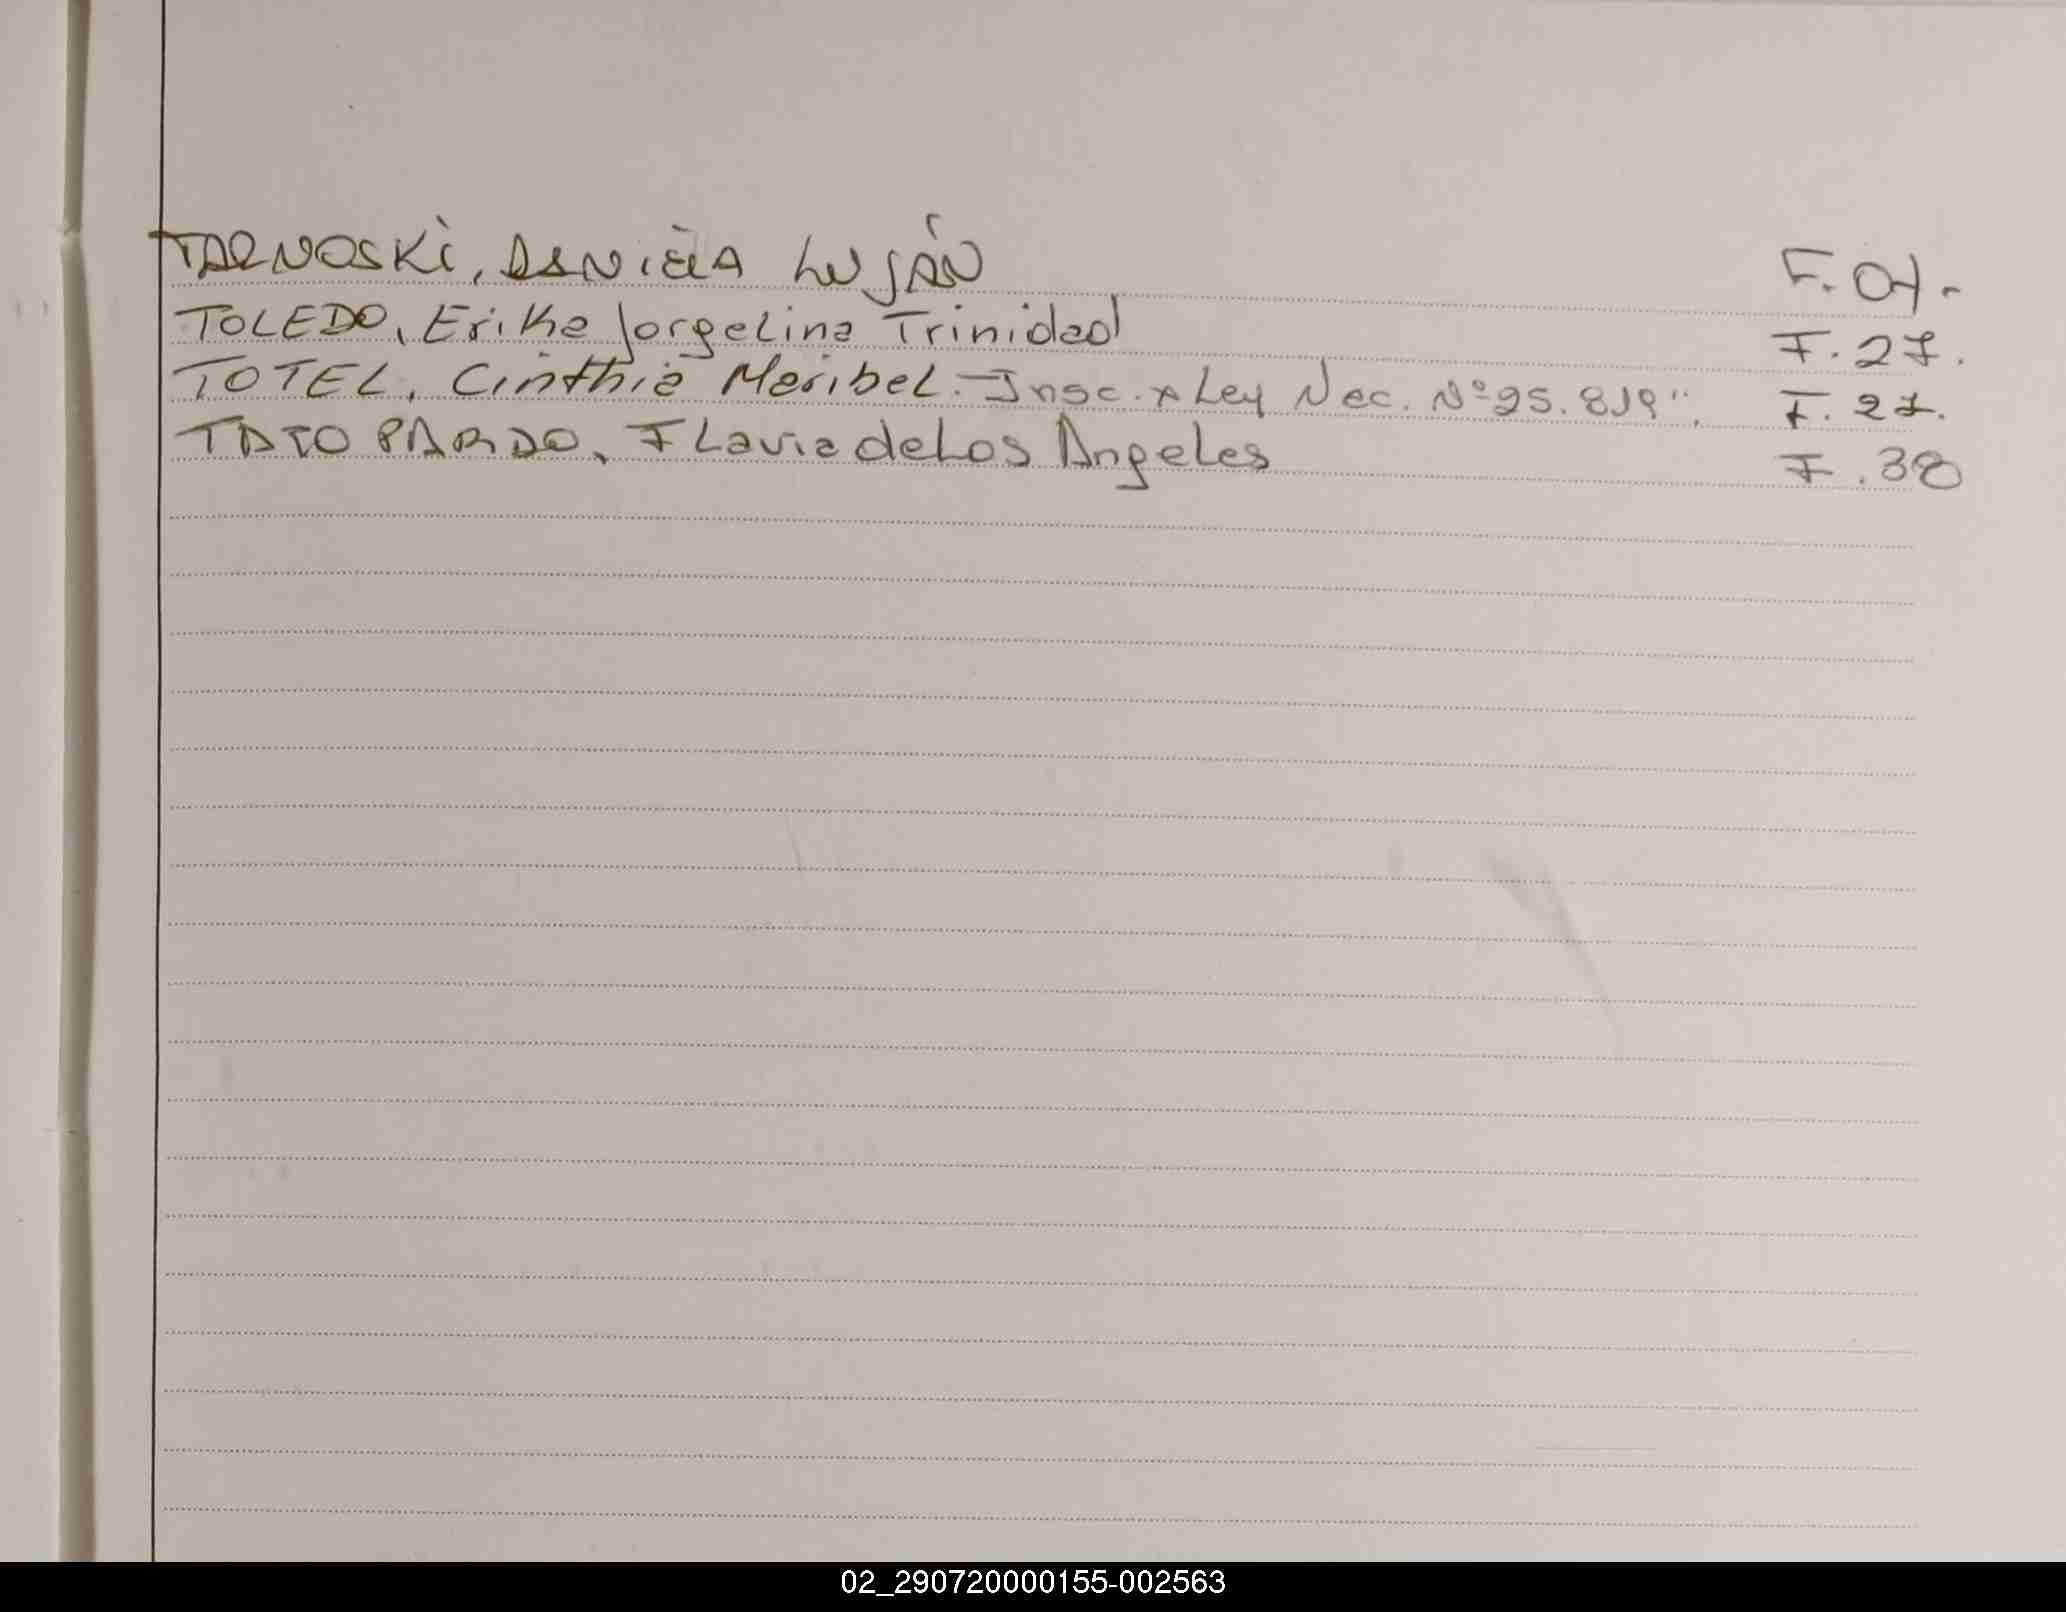 TARNOSKi, DANiELA LUJÁN F. 01-
TOLEDO, Erika Jorgelina Trinidad F. 27.
TOTEL, Cinthia Maribel.- Insc. x Ley Nac. Nº 25.819". F. 27.
TATO PARDO, Flavia de Los Angeles F. 38
02_290720000155-002563